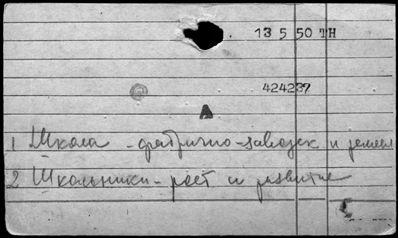 13 5 50 TH
424237
А
1 Школа - фабрично-заводск и ремесл
2 Школьники - рост и развитие